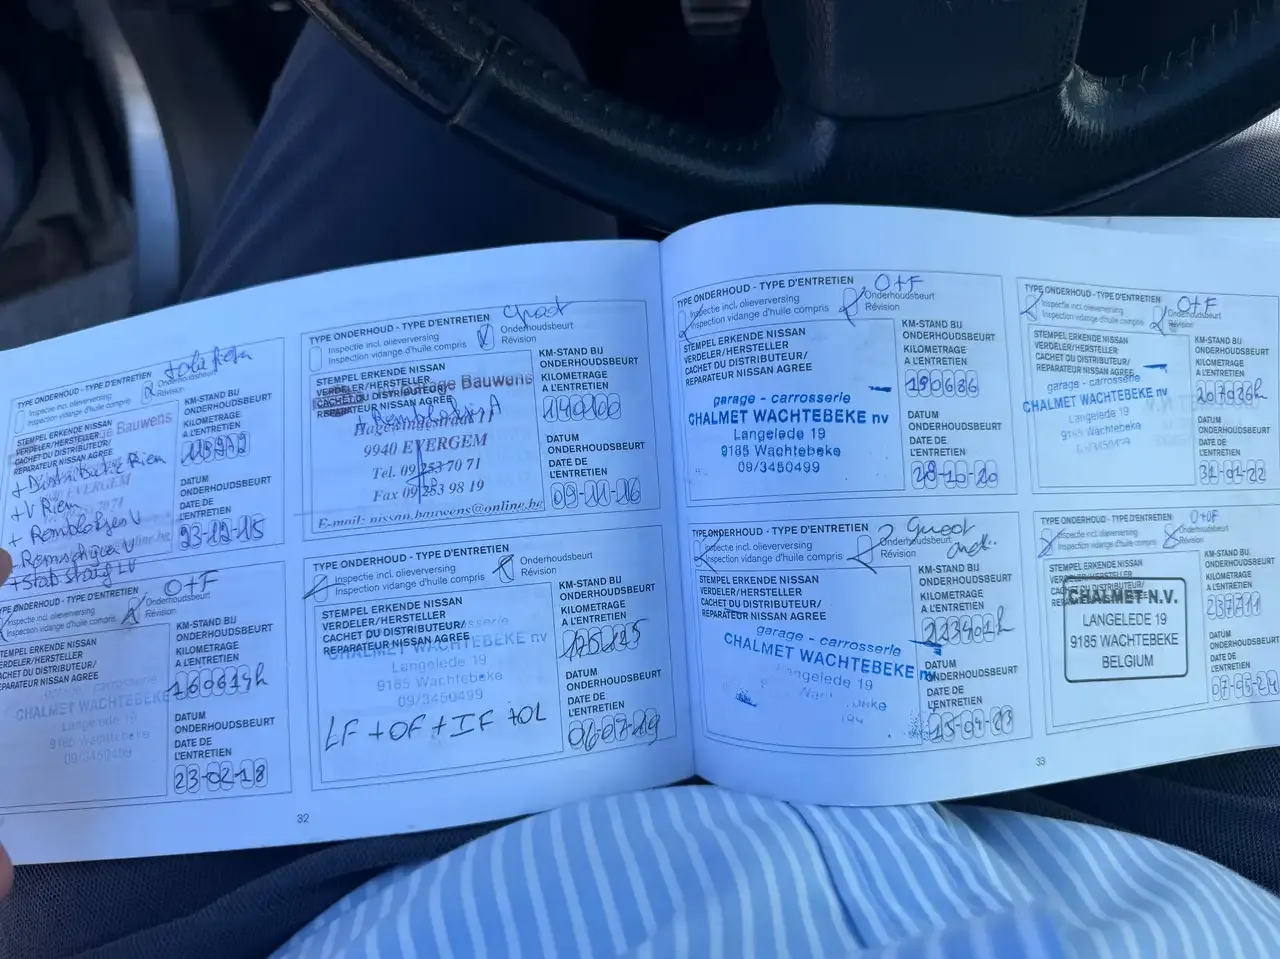 TYPE ONDERHOUD - TYPE D'ENTRETIEN
Inspectie incl. olieverversing
Inspection vidange d'huile compris
Onderhoudsbeurt
Révision
STEMPEL ERKENDE NISSAN
VERDELER/HERSTELLER
CACHET DU DISTRIBUTEUR/
REPARATEUR NISSAN AGREE
Bauwens
+ Distributie Riem
+ V Riem
+ Remblokken V
+ Remschijven V
+ Stab stang LV
KM-STAND BIJ
ONDERHOUDSBEURT
KILOMETRAGE
A L'ENTRETIEN
DATUM
ONDERHOUDSBEURT
DATE DE
L'ENTRETIEN
23-12-15
TYPE ONDERHOUD - TYPE D'ENTRETIEN
Groot
Inspectie incl. olieverversing
Inspection vidange d'huile compris
Onderhoudsbeurt
Révision
STEMPEL ERKENDE NISSAN
VERDELER/HERSTELLER
CACHET DU DISTRIBUTEUR/
REPARATEUR NISSAN AGREE
Garage Bauwens
Remblokken A
Hagelandestraat 11
9940 EVERGEM
Tel. 09 253 70 71
Fax 09 253 98 19
E-mail: nissan.bauwens@online.be
KM-STAND BIJ
ONDERHOUDSBEURT
KILOMETRAGE
A L'ENTRETIEN
140100
DATUM
ONDERHOUDSBEURT
DATE DE
L'ENTRETIEN
09-11-16
TYPE ONDERHOUD - TYPE D'ENTRETIEN
O+F
Inspection vidange d'huile compris
Onderhoudsbeurt
Révision
STEMPEL ERKENDE NISSAN
VERDELER/HERSTELLER
CACHET DU DISTRIBUTEUR/
REPARATEUR NISSAN AGREE
garage - carrosserie
CHALMET WACHTEBEKE
Langelede 19
9185 Wachtebeke
09/3450499
KM-STAND BIJ
ONDERHOUDSBEURT
KILOMETRAGE
A L'ENTRETIEN
DATUM
ONDERHOUDSBEURT
DATE DE
L'ENTRETIEN
23-02-18
TYPE ONDERHOUD - TYPE D'ENTRETIEN
Inspectie incl. olieverversing
Inspection vidange d'huile compris
Onderhoudsbeurt
Révision
STEMPEL ERKENDE NISSAN
VERDELER/HERSTELLER
CACHET DU DISTRIBUTEUR/
REPARATEUR NISSAN AGREE
CHALMET WACHTEBEKE nv
Langelede 19
9185 Wachtebeke
09/3450499
LF + OF + IF + OL
KM-STAND BIJ
ONDERHOUDSBEURT
KILOMETRAGE
A L'ENTRETIEN
DATUM
ONDERHOUDSBEURT
DATE DE
L'ENTRETIEN
06-07-19
32
TYPE ONDERHOUD - TYPE D'ENTRETIEN
O+F
Inspectie incl. olieverversing
Inspection vidange d'huile compris
Onderhoudsbeurt
Révision
STEMPEL ERKENDE NISSAN
VERDELER/HERSTELLER
CACHET DU DISTRIBUTEUR/
REPARATEUR NISSAN AGREE
garage - carrosserie
CHALMET WACHTEBEKE nv
Langelede 19
9185 Wachtebeke
09/3450499
KM-STAND BIJ
ONDERHOUDSBEURT
KILOMETRAGE
A L'ENTRETIEN
190686
DATUM
ONDERHOUDSBEURT
DATE DE
L'ENTRETIEN
28-10-20
TYPE ONDERHOUD - TYPE D'ENTRETIEN
O+F
Inspectie incl. olieverversing
Inspection vidange d'huile compris
Onderhoudsbeurt
Révision
STEMPEL ERKENDE NISSAN
VERDELER/HERSTELLER
CACHET DU DISTRIBUTEUR/
REPARATEUR NISSAN AGREE
garage - carrosserie
CHALMET WACHTEBEKE nv
Langelede 19
9185 Wachtebeke
KM-STAND BIJ
ONDERHOUDSBEURT
KILOMETRAGE
A L'ENTRETIEN
DATUM
ONDERHOUDSBEURT
DATE DE
L'ENTRETIEN
31-01-22
TYPE ONDERHOUD - TYPE D'ENTRETIEN
Groot
ond.
Inspectie incl. olieverversing
Inspection vidange d'huile compris
Onderhoudsbeurt
Révision
STEMPEL ERKENDE NISSAN
VERDELER/HERSTELLER
CACHET DU DISTRIBUTEUR/
REPARATEUR NISSAN AGREE
garage - carrosserie
CHALMET WACHTEBEKE nv
Langelede 19
KM-STAND BIJ
ONDERHOUDSBEURT
KILOMETRAGE
A L'ENTRETIEN
DATUM
ONDERHOUDSBEURT
DATE DE
L'ENTRETIEN
TYPE ONDERHOUD - TYPE D'ENTRETIEN
Inspectie incl. olieverversing
Inspection vidange d'huile compris
Onderhoudsbeurt
Révision
STEMPEL ERKENDE NISSAN
VERDELER/HERSTELLER
CHALMET N.V.
LANGELEDE 19
9185 WACHTEBEKE
BELGIUM
KM-STAND BIJ
ONDERHOUDSBEURT
KILOMETRAGE
A L'ENTRETIEN
DATUM
ONDERHOUDSBEURT
DATE DE
L'ENTRETIEN
33